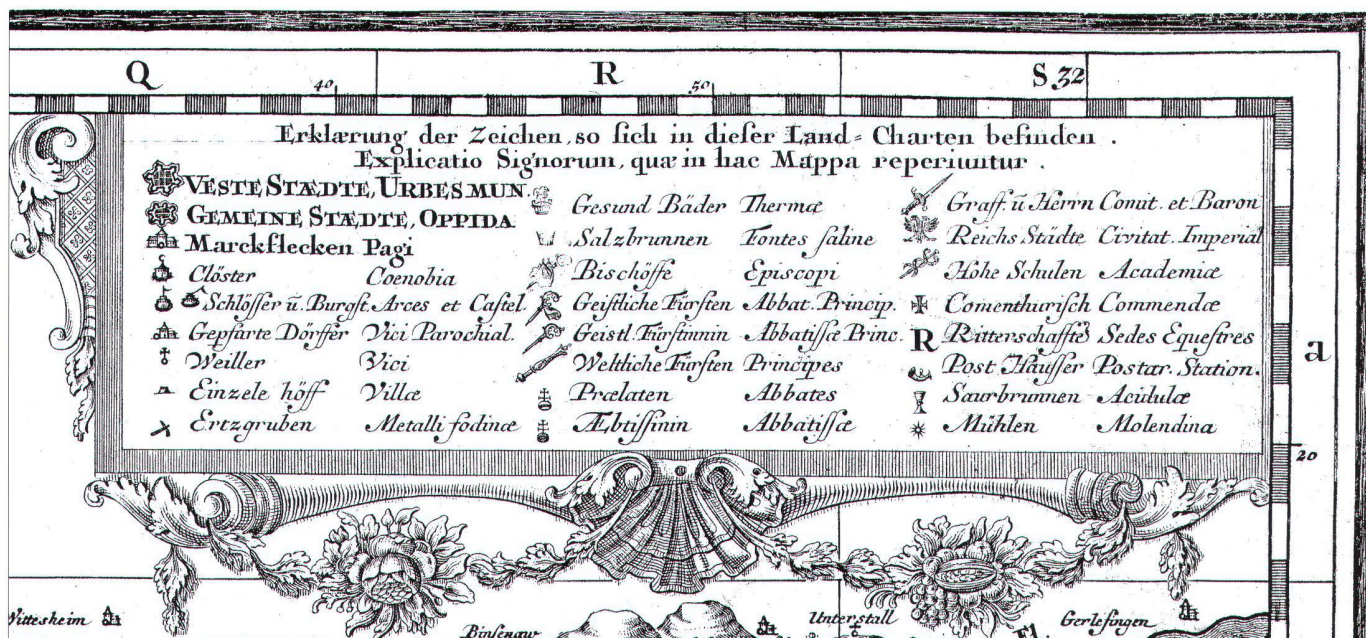 Q R S 32
40 50
Erklærung der Zeichen, so sich in dieser Land=Charten befinden.
Explicatio Signorum, quæ in hac Mappa reperiuntur.
VESTE STÆDTE, URBES MUN.
GEMEINE STÆDTE, OPPIDA
Marckflecken Pagi
Clöster Coenobia
Schlösser ū. Burgst. Arces et Castel.
Gepfarte Dörffer Vici Parochial.
Weiller Vici
Einzele höff Villæ
Ertzgruben Metalli fodinæ
Gesund Bäder Thermæ
Salzbrunnen Fontes saline
Bischöffe Episcopi
Geistliche Fürsten Abbat. Princip.
Geistl. Fürstinnin Abbatissæ Princ.
Weltliche Fürsten Principes
Prælaten Abbates
Æbtissinin Abbatissæ
Graff. ū Herrn Comit. et Baron
Reichs Städte Civitat. Imperial
Hohe Schulen Academiæ
Comenthurisch Commendæ
R Ritterschafftẽs Sedes Equestres
Post. Häusser Postar. Station.
Saurbrunnen Acidulæ
Mühlen Molendina
a
20
Wittesheim
Binsenaw
Unterstall
Gerlefingen